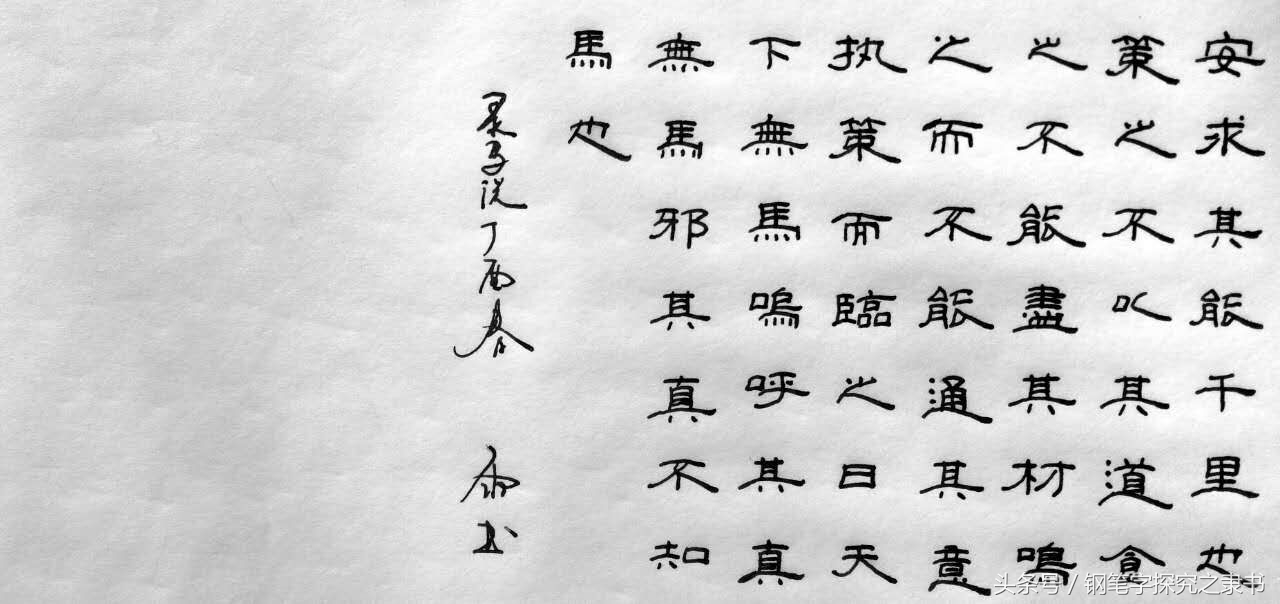 安求其能千里也
策之不以其道食
之不能盡其材鳴
之而不能通其意
执策而臨之曰天
下無馬嗚呼其真
無馬邪其真不知
馬也
录马说丁酉春
书
头条号 / 钢笔字探究之隶书